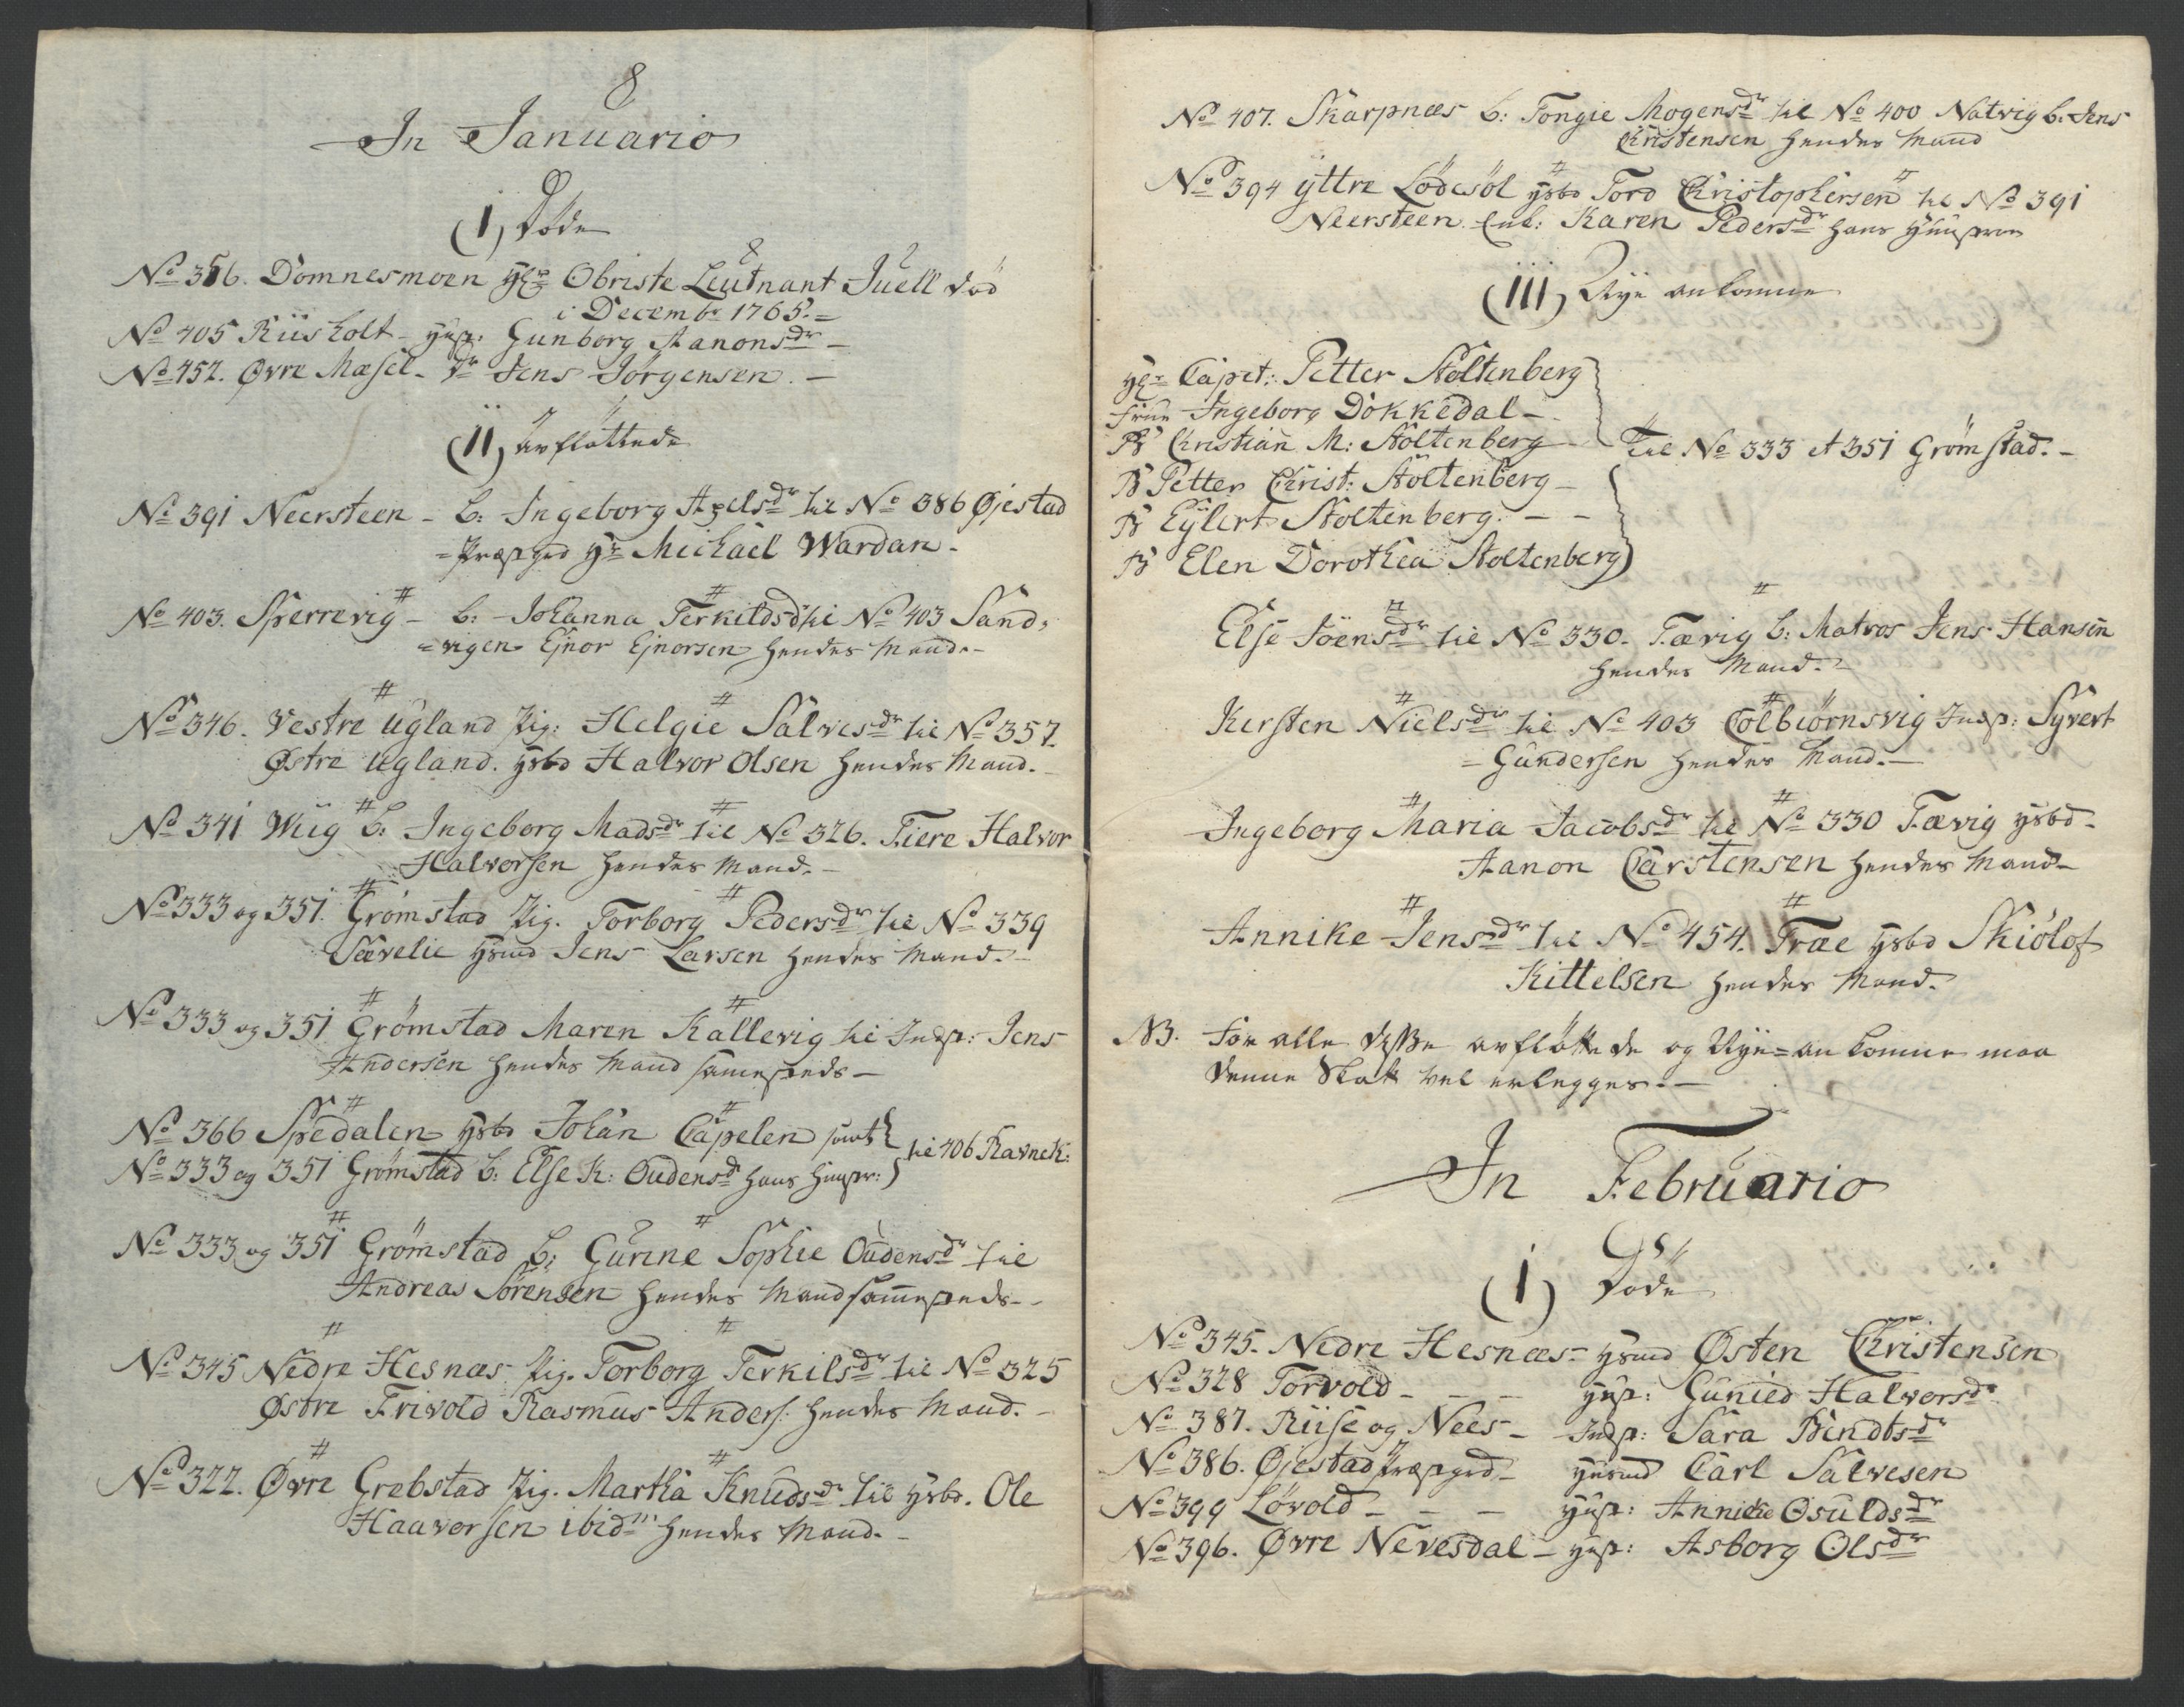 8
In Januario
(I) Døde
No 356. Domnesmoen Hr Obriste Leutnant Juell død
i Decembr 1765.=
No 405 Riisholt - Hust: Gunborg Aanonsdr -
No 452. Øvre Mæsel - Dr Jens Jørgensen. -
(II) Avfløttede
No 391 Neersteen - b: Ingeborg Axelsdr til No 386 Øjestad
=Præstgrd Hr Michael Wardan -
No 403. Sperrevig - b: Johanna Terkildsdr til No 403 Sand,
=vigen Ejnor Ejnorsen hendes Mand.-
No 346. Vestre Ugland Pig: Helgie Salvesdr til No 357.
Østre Ugland. Hsbd Halvor Olsen hendes Mand.
No 341 Wiig b: Ingeborg Madsdr til No 326. Fiere Halvor
Halvorsen hendes Mand.-
No 333 og 351. Grømstad Pig. Torborg Pedersdr til No 339
Sævelie Hsmd Jens Larsen hendes Mand.-
No 333 og 351 Grømstad Maren Kallevig til Indst: Jens
Andersen hendes Mand sammesteds -
No 366 Spedalen Hsbd Johan Capelen samt } til 406 Ravnek:
No 333 og 351 Grømstad b: Else K: Oudensdr hans Hustr: }
No 333 og 351 Grømstad b: Gurine Sophie Oudensdr til
Andreas Sørensen hendes Mand sammesteds--
No 345 Nedre Hesnæs Pig. Torborg Terkilsdr til No 325
Østre Frivold Rasmus Anders. hendes Mand.-
No 322. Øvre Grebstad Pig. Martha Knudsdr til Hsbd. Ole
Haavorsen ibidm hendes Mand.-
No 407. Skarpnæs b: Tongie Mogensdr til No 400 Natvig b: Jens
Christensen hendes Mand
No 394 Yttre Lødesøl Hsbd Tord Christophersen til No 391
Neersteen Enk: Karen Pedersdr hans Hustrue
(III) Nye ankomne
Hr Capit: Petter Stoltenberg
Frue Ingeborg Dokkedal -
B Christian M: Stoltenberg } Til No 333 et 351 Grømstad. -
B Petter Christ: Stoltenberg -
B Eylert Stoltenberg. - -
B Elen Dorothea Stoltenberg
Else Joensdr til No 330. Fævig b: Matros Jens Hansen
hendes Mand.-
Kersten Nielsdr til No 403 Colbiørnsvig Indst: Syvert
=Gundersen hendes Mand.-
Ingeborg Maria Jacobsdr til No 330 Fævig Hsbd-
Aanon Carstensen hendes Mand-
Annike Jensdr til No 454. Træe Hsbd Skiølof
Kittelsen hendes Mand.
NB. For alle disse avfløttede og Nye=ankomne maa
denne Skatt vel erlegges.-
In Februario
(I) Døde
No 345. Nedre Hesnæs- Hsmd Østen Christensen
No 328 Torvold - - - Hust: Gunied Halvorsdr
No 387. Riise og Nees - Indst: Sara Bendtsdr
No 386. Øjestad Præstgrd - Husmd Carl Salvesen
No 399 Løvold - - - Hust: Annichie Osuldsdr
No 396. Øvre Nevesdal - Hust: Asborg Olsdr